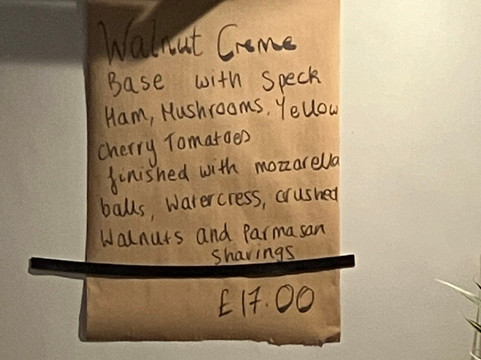 Walnut Creme
Base with Speck
Ham, Mushrooms, Yellow
Cherry Tomatoes
finished with mozzarella
balls, Watercress, crushed
Walnuts and Parmasan
shavings
£17.00